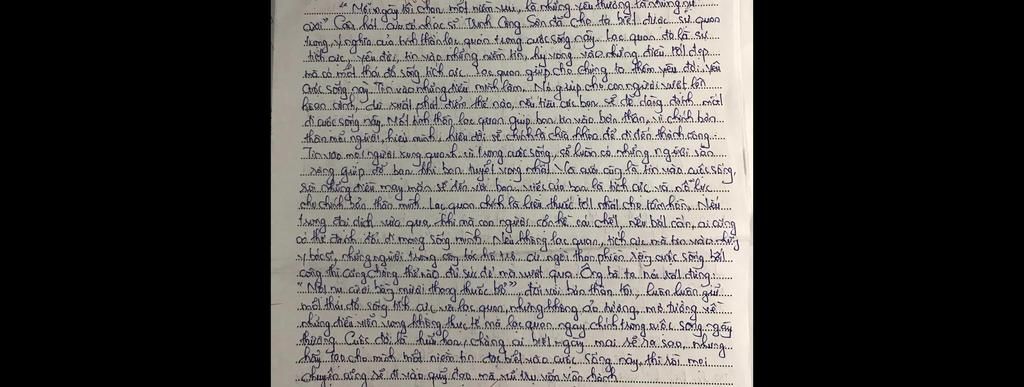 "Mỗi ngày tôi chọn một niềm vui, là những yêu thương, là những nụ
cười" Câu hát của cố nhạc sĩ Trịnh Công Sơn đã cho ta biết được sự quan
trọng, ý nghĩa của tinh thần lạc quan trong cuộc sống này. Lạc quan đó là sự
tích cực, yêu đời, tin vào những niềm tin, hy vọng vào những điều tốt đẹp
mà có một thái độ sống tích cực. Lạc quan giúp cho chúng ta thêm yêu đời, yêu
cuộc sống này. Tin vào những điều mình làm. Nó giúp cho con người vượt lên
hoàn cảnh, dù xuất phát điểm thế nào, nếu tiêu cực bạn sẽ dễ dàng đánh mất
đi cuộc sống này. Một tinh thần lạc quan giúp bạn tin vào bản thân, vì chính bản
thân mỗi người, hiểu mình, hiểu đời sẽ chính là chìa khóa để đi đến thành công.
Tin vào mọi người xung quanh vì trong cuộc sống, sẽ luôn có những người sẵn
sàng giúp đỡ bạn khi bạn tuyệt vọng nhất. Và cuối cùng là tin vào cuộc sống,
sẽ những điều may mắn sẽ đến với bạn, việc của bạn là tích cực và nỗ lực
cho chính bản thân mình. Lạc quan chính là liều thuốc tốt nhất cho tâm hồn. Nếu
trong đại dịch vừa qua, khi mà con người cận kề cái chết, nếu bất cẩn, ai cũng
có thể đánh đổi đi mạng sống mình. Nếu không lạc quan, tích cực mà tin vào những
y bác sĩ, những người trong công tác hỗ trợ, cứ ngồi than phiền rằng cuộc sống bất
công thì cũng chẳng thể nào đủ sức để mà vượt qua. Ông bà ta nói rất đúng:
"Một nụ cười bằng mười thang thuốc bổ", đối với bản thân tôi, luôn luôn giữ
một thái độ sống tích cực và lạc quan, nhưng không ảo tưởng, mơ tưởng về
những điều viển vông không thực tế mà lạc quan ngay chính trong cuộc sống ngày
thường. Cuộc đời là hữu hạn, chẳng ai biết ngày mai sẽ ra sao, nhưng
hãy tạo cho mình một niềm tin đặc biệt vào cuộc sống này, thì rồi mọi
chuyện cũng sẽ đi vào quỹ đạo mà vũ trụ vốn vận hành.